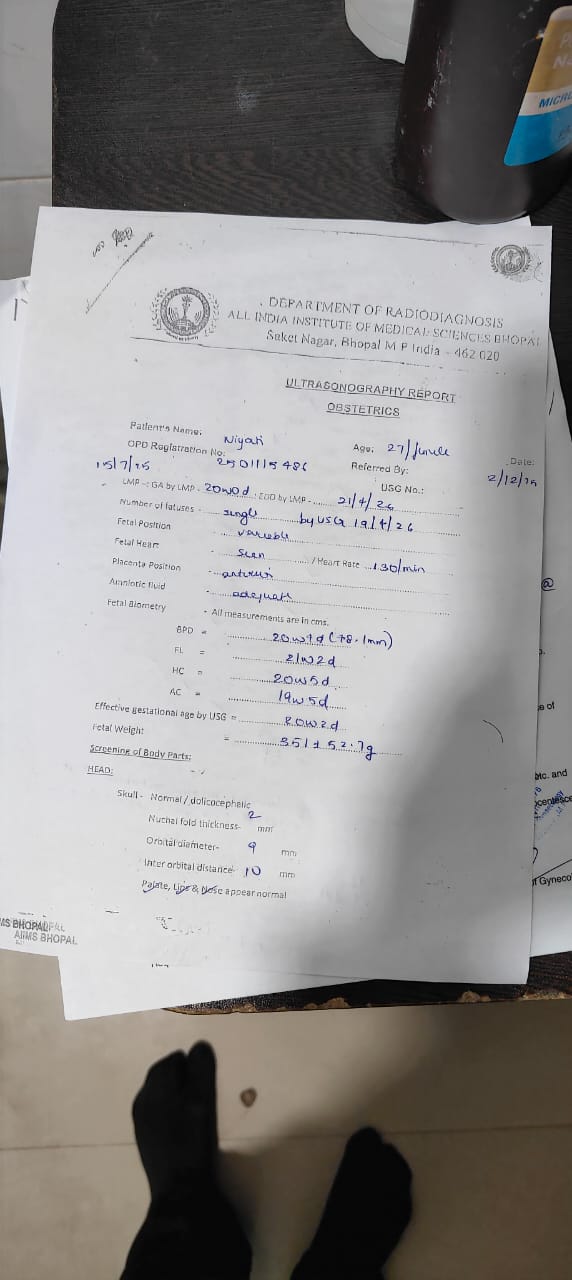 MICRO
DEPARTMENT OF RADIODIAGNOSIS
ALL INDIA INSTITUTE OF MEDICAL SCIENCES BHOPAL
Saket Nagar, Bhopal M P India - 462 020
ULTRASONOGRAPHY REPORT
OBSTETRICS
Patient's Name: Niyati Age: 27/female Date: 2/12/25
OPD Registration No: 2501115486 Referred By:
15/7/25 USG No.:
LMP -: GA by LMP - 20w0d : EDD by LMP - 21/4/26
Number of fatuses - single by USG 19/4/26
Fetal Position - variable
Fetal Heart - seen / Heart Rate 130/min
Placenta Position - anterior
Amniotic fluid - adequate
Fetal Biometry - All measurements are in cms.
BPD = 20w1d
FL = 21w2d
HC = 20w5d
AC = 19w5d
Effective gestational age by USG = 20w2d
Fetal Weight = 351±52.7g
Screening of Body Parts:
HEAD:
Skull - Normal / dolicocephalic
Nuchal fold thickness- 2 mm
Orbital diameter- 9 mm
Inter orbital distance- 10 mm
Palate, Lips & Nose appear normal
e of
etc. and
f Gyneco
AIIMS BHOPAL